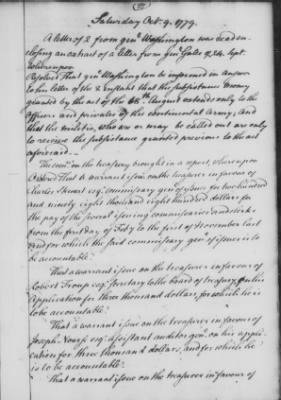 Saturday Oct. 9. 1779.
A letter of 2 from genl Washington was read en-
closing an extract of a letter from genl Gates of 24. Sept.
whereupon
Resolved That genl Washington be informed in answer
to his letter of the 2 instant that the subsistance money
granted by the act of the 18. August extends only to the
officers and privates of the continental Army and
that the militia, who are or may be called out are only
to receive the subsistance granted previous to the act
aforesaid.
The comee on the treasury brought in a report, whereupon
Ordered That a warrant issue on the treasurer in favour of
Charles Stewart esqr commissary genl of issues for two hundred
and ninety eight thousand eight hundred dollars for
the pay of the several issuing commissaries and clerks
from the first day of Feby to the first of November last
and for which the said commissary genl of issues is to
be accountable.
That a warrant issue on the treasurer in favour of
Robert Troup esqr secretary to the board of treasury on his
application for three thousand dollars, for which he is
to be accountable.
That a warrant issue on the treasurer in favour of
Joseph Nourse esqr assistant auditor genl on his appli-
cation for three thousand dollars, and for which he
is to be accountable.
That a warrant issue on the treasurer in favour of